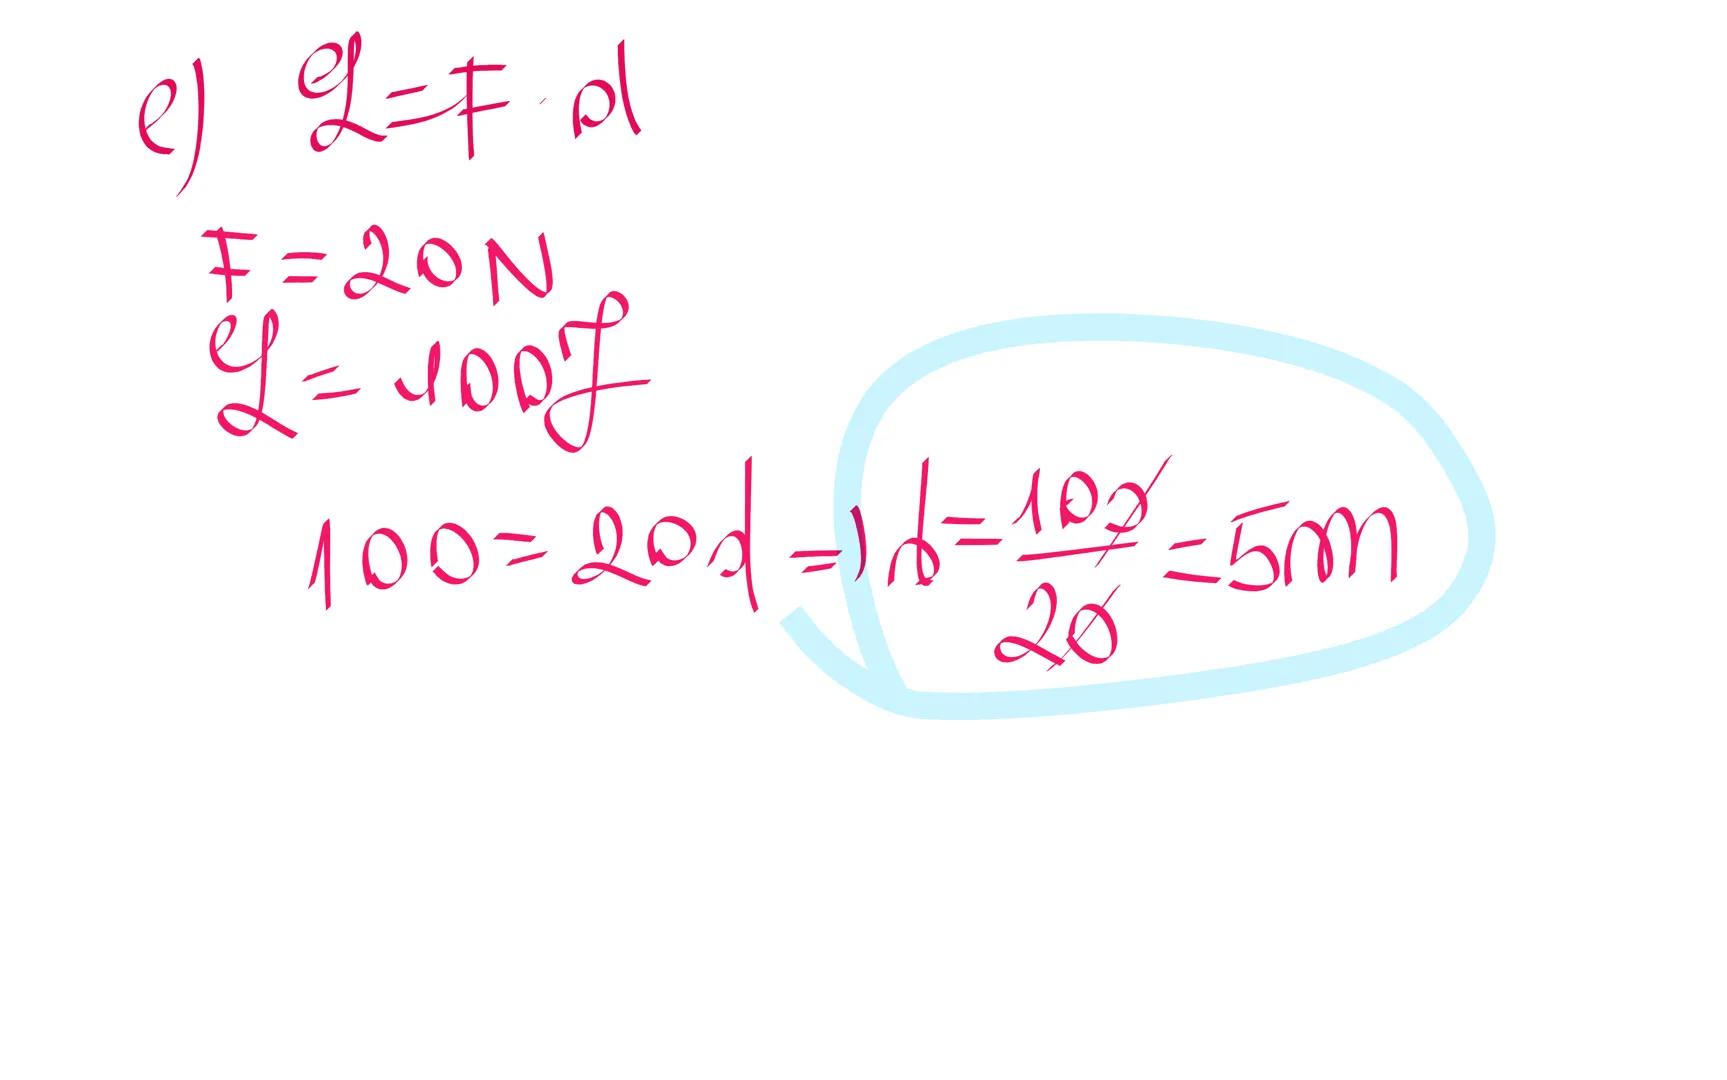 e) L = F · d
F = 20 N
L = 100 J
100 = 20 d => d = 100/20 = 5m